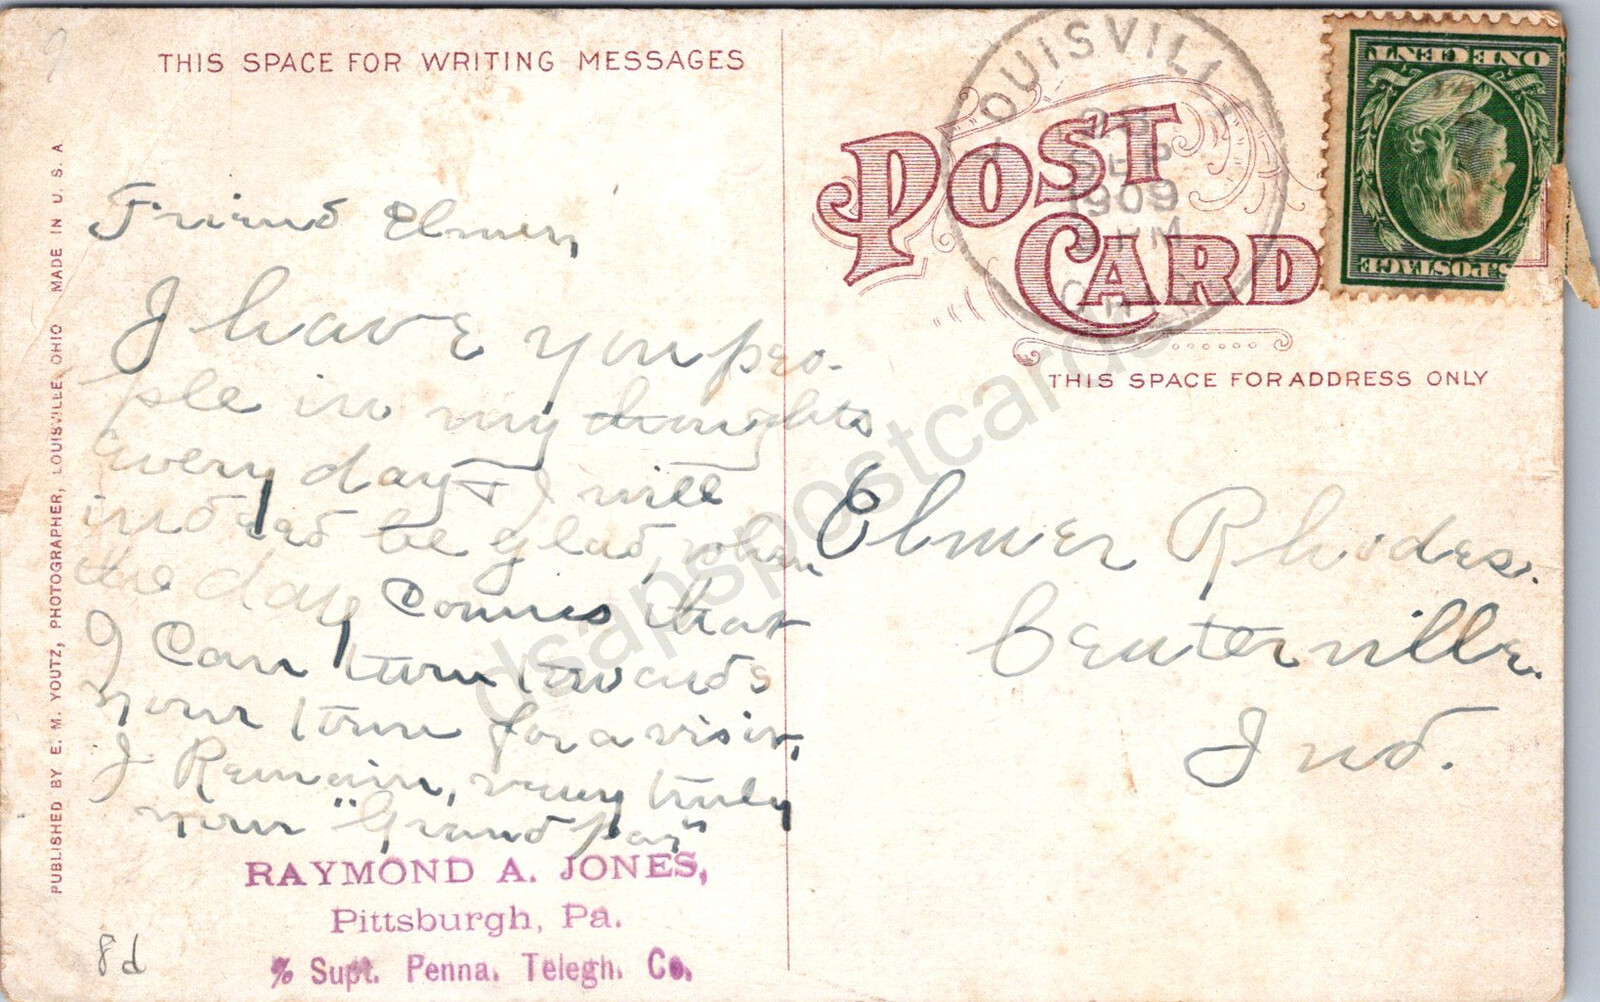 9
THIS SPACE FOR WRITING MESSAGES
PUBLISHED BY E. M. YOUTZ, PHOTOGRAPHER, LOUISVILLE, OHIO MADE IN U. S. A
Friend Elmer,
I have you peo-
ple in my thoughts
every day & I will
indeed be glad, when
the day comes that
I can turn towards
your town for a visit,
I Remain, very truly
your "Grandpay"
RAYMOND A. JONES,
Pittsburgh, Pa.
% Supt. Penna. Telegh. Co.
8d
LOUISVILLE
SEP
1909
PM
OHIO
POST
CARD
ONE CENT
POSTAGE
THIS SPACE FOR ADDRESS ONLY
Elmer Rhodes.
Centerville.
Ind.
dsapspostcards